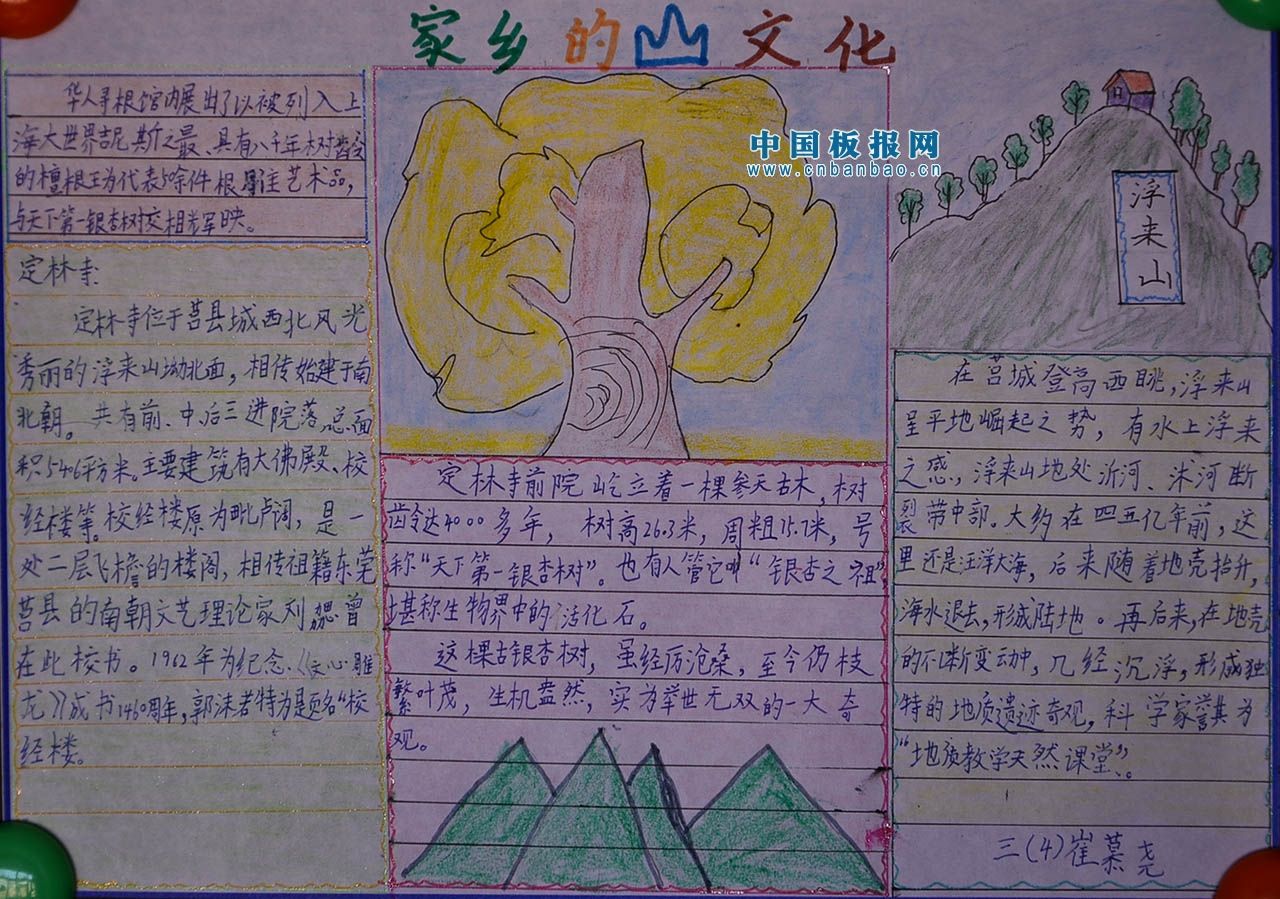 家乡的山文化
华人寻根馆内展出了以被列入上
海大世界吉尼斯之最、具有八千年树龄
的檀根王为代表50余件根雕艺术品,
与天下第一银杏树交相光军映。
定林寺:
定林寺位于莒县城西北风光
秀丽的浮来山坳北面,相传始建于南
北朝。共有前、中、后三进院落,总面
积5406平方米。主要建筑有大佛殿、校
经楼等。校经楼原为毗卢阁,是一
处二层飞檐的楼阁,相传祖籍东莞
莒县的南朝文艺理论家刘勰曾
在此校书。1962年为纪念《文心雕
龙》成书1460周年,郭沫若特为是题名“校
经楼。
中国板报网
www.cnbanbao.cn
定林寺前院屹立着一棵参天古木,树
龄达4000多年,树高26.3米,周粗15.7米,号
称“天下第一银杏树”。也有人管它叫“银杏之祖”
堪称生物界中的活化石。
这棵古银杏树,虽经历沧桑,至今仍枝
繁叶茂,生机盎然,实为举世无双的一大奇
观。
浮来山
在莒城登高西眺,浮来山
呈平地崛起之势,有水上浮来
之感。浮来山地处沂河、沭河断
裂带中部。大约在四五亿年前,这
里还是汪洋大海,后来随着地壳抬升,
海水退去,形成陆地。再后来,在地壳
的不断变动中,几经沉浮,形成独
特的地质遗迹奇观,科学家誉其为
“地质教学天然课堂”。
三(4)崔慕尧